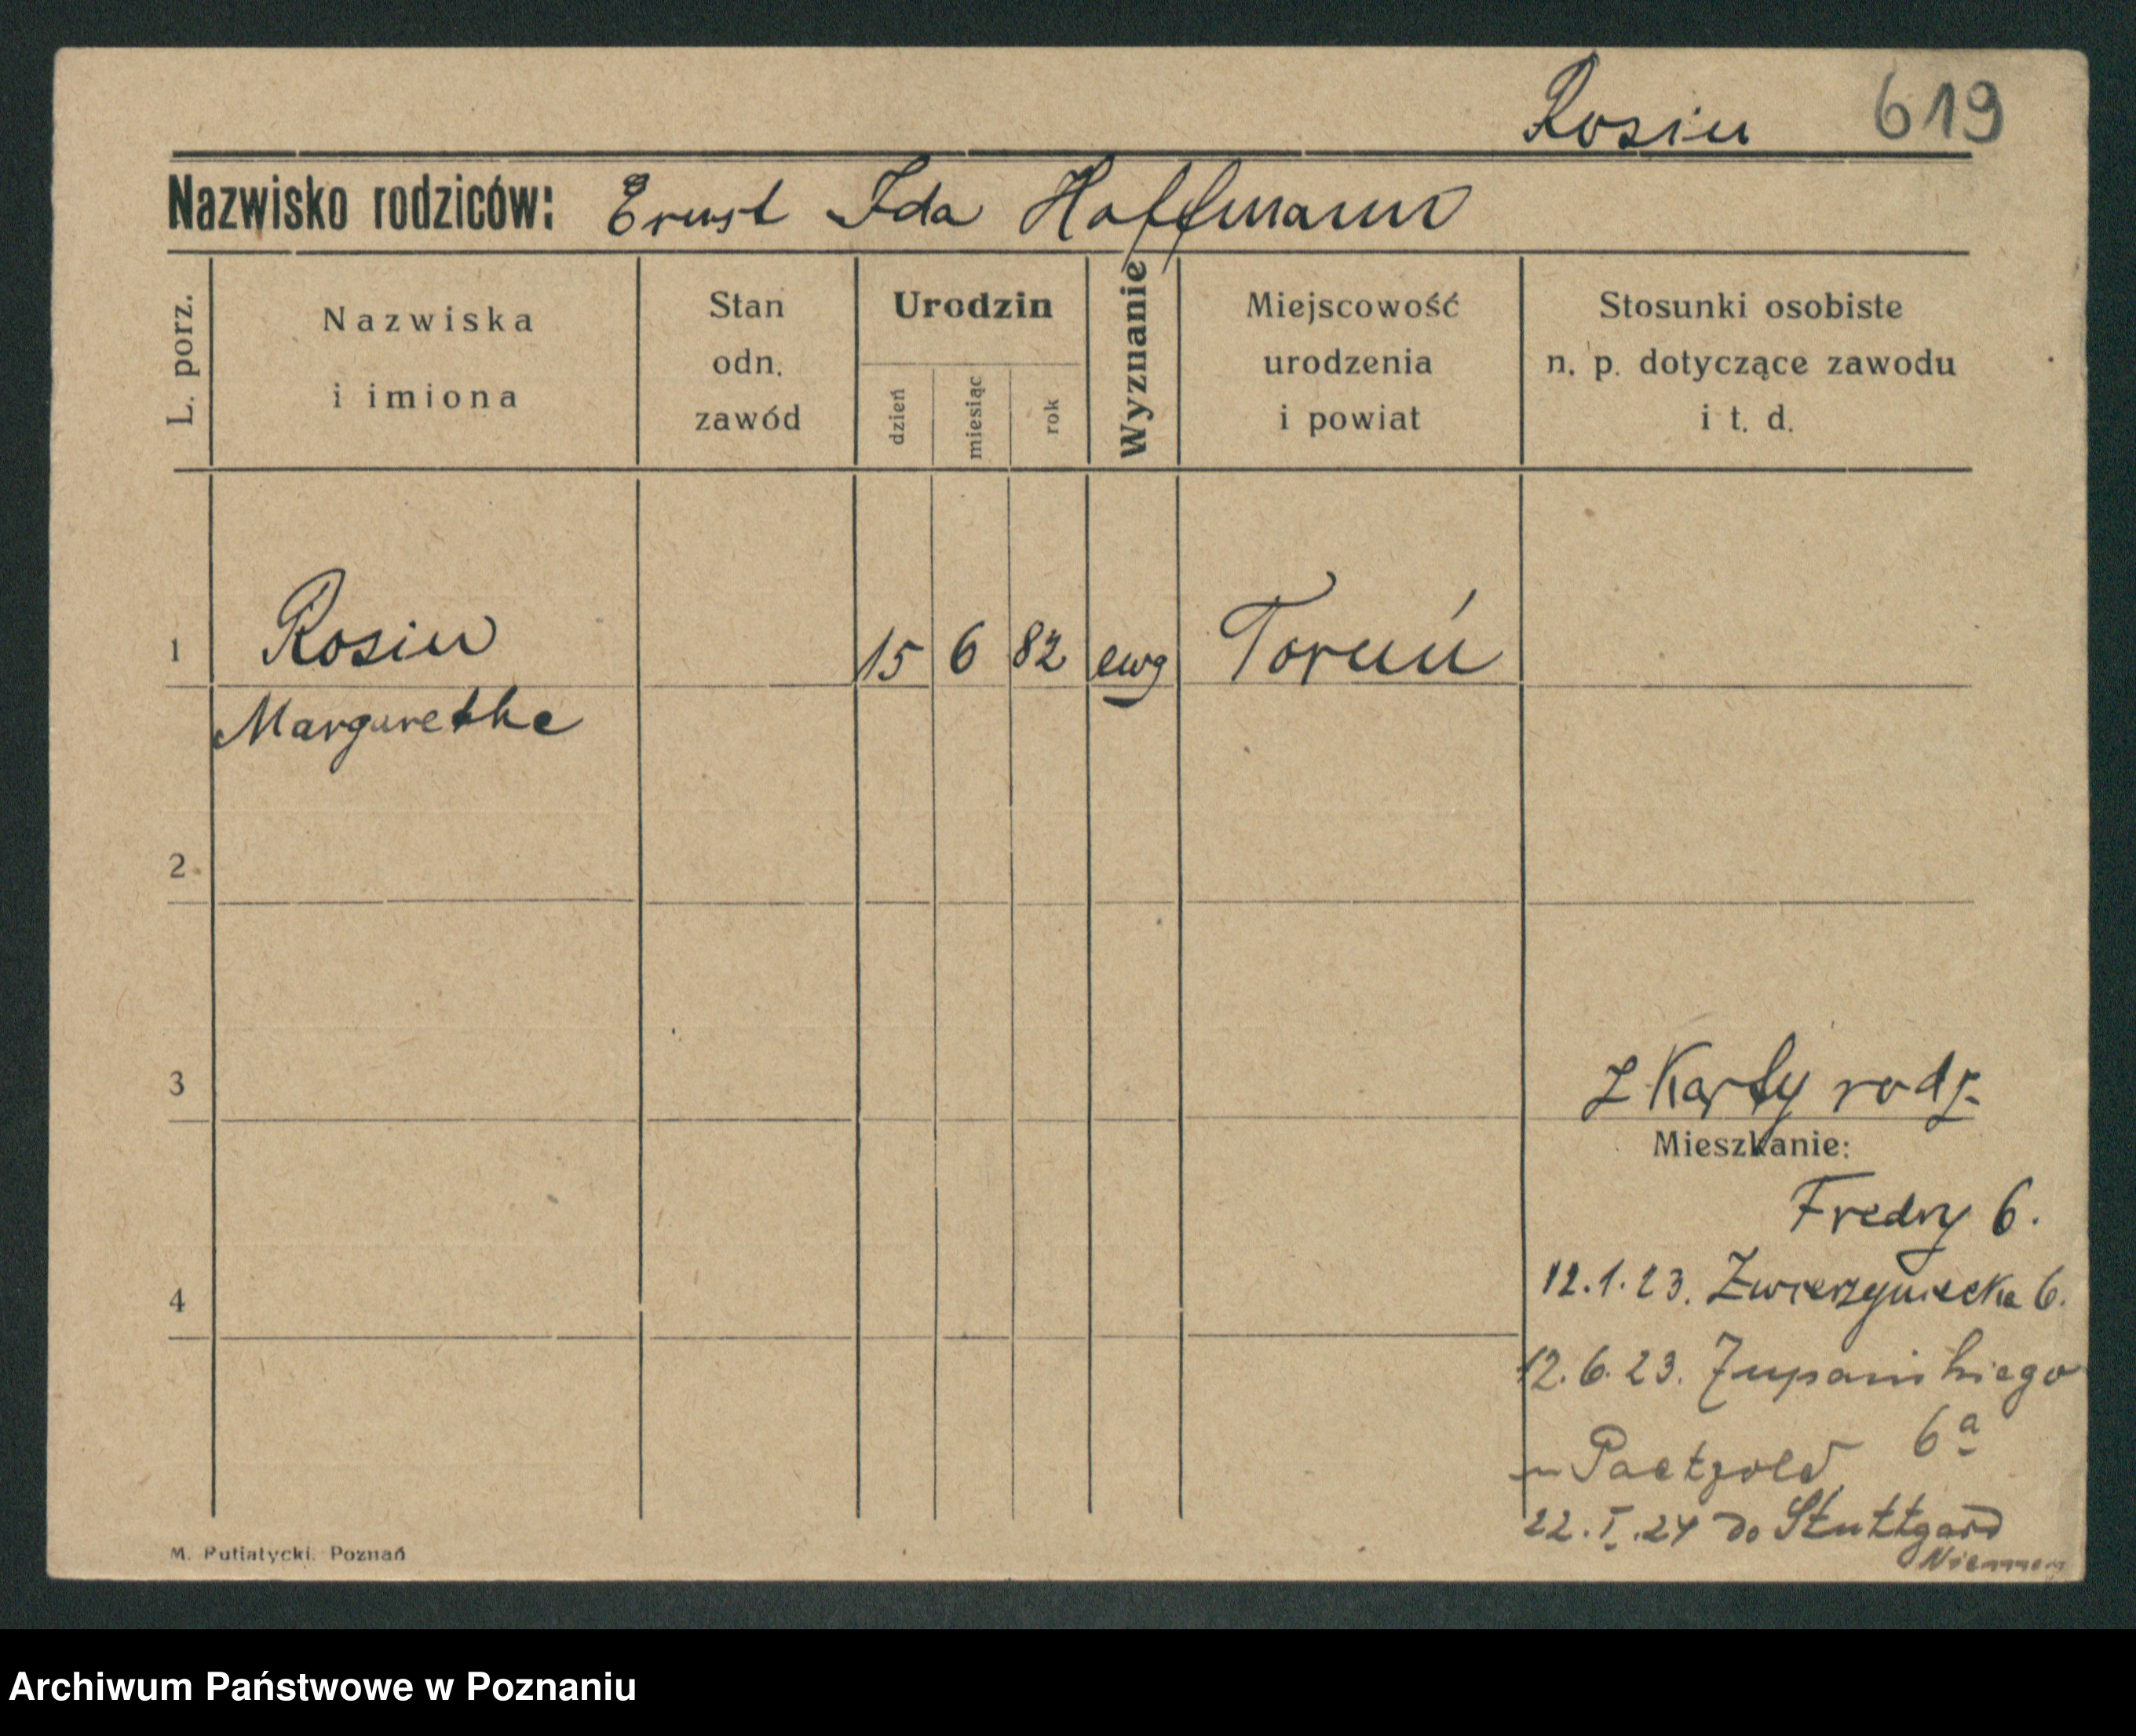 Rosin 619
Nazwisko rodziców: Ernst Ida Hoffmann
L. porz.
Nazwiska
i imiona
Stan
odn.
zawód
Urodzin
dzień
miesiąc
rok
Wyznanie
Miejscowość
urodzenia
i powiat
Stosunki osobiste
n. p. dotyczące zawodu
i t. d.
1 Rosin 15 6 82 ewg Toruń
Margarethe
2
3
z Karty rodz.
Mieszkanie:
Fredry 6.
12.1.23. Zwierzyniecka 6.
4
12.6.23. Zupańskiego
6a
Paetzold
22.I.24 do Stuttgard
Niemcy
M. Putiatycki. Poznań
Archiwum Państwowe w Poznaniu